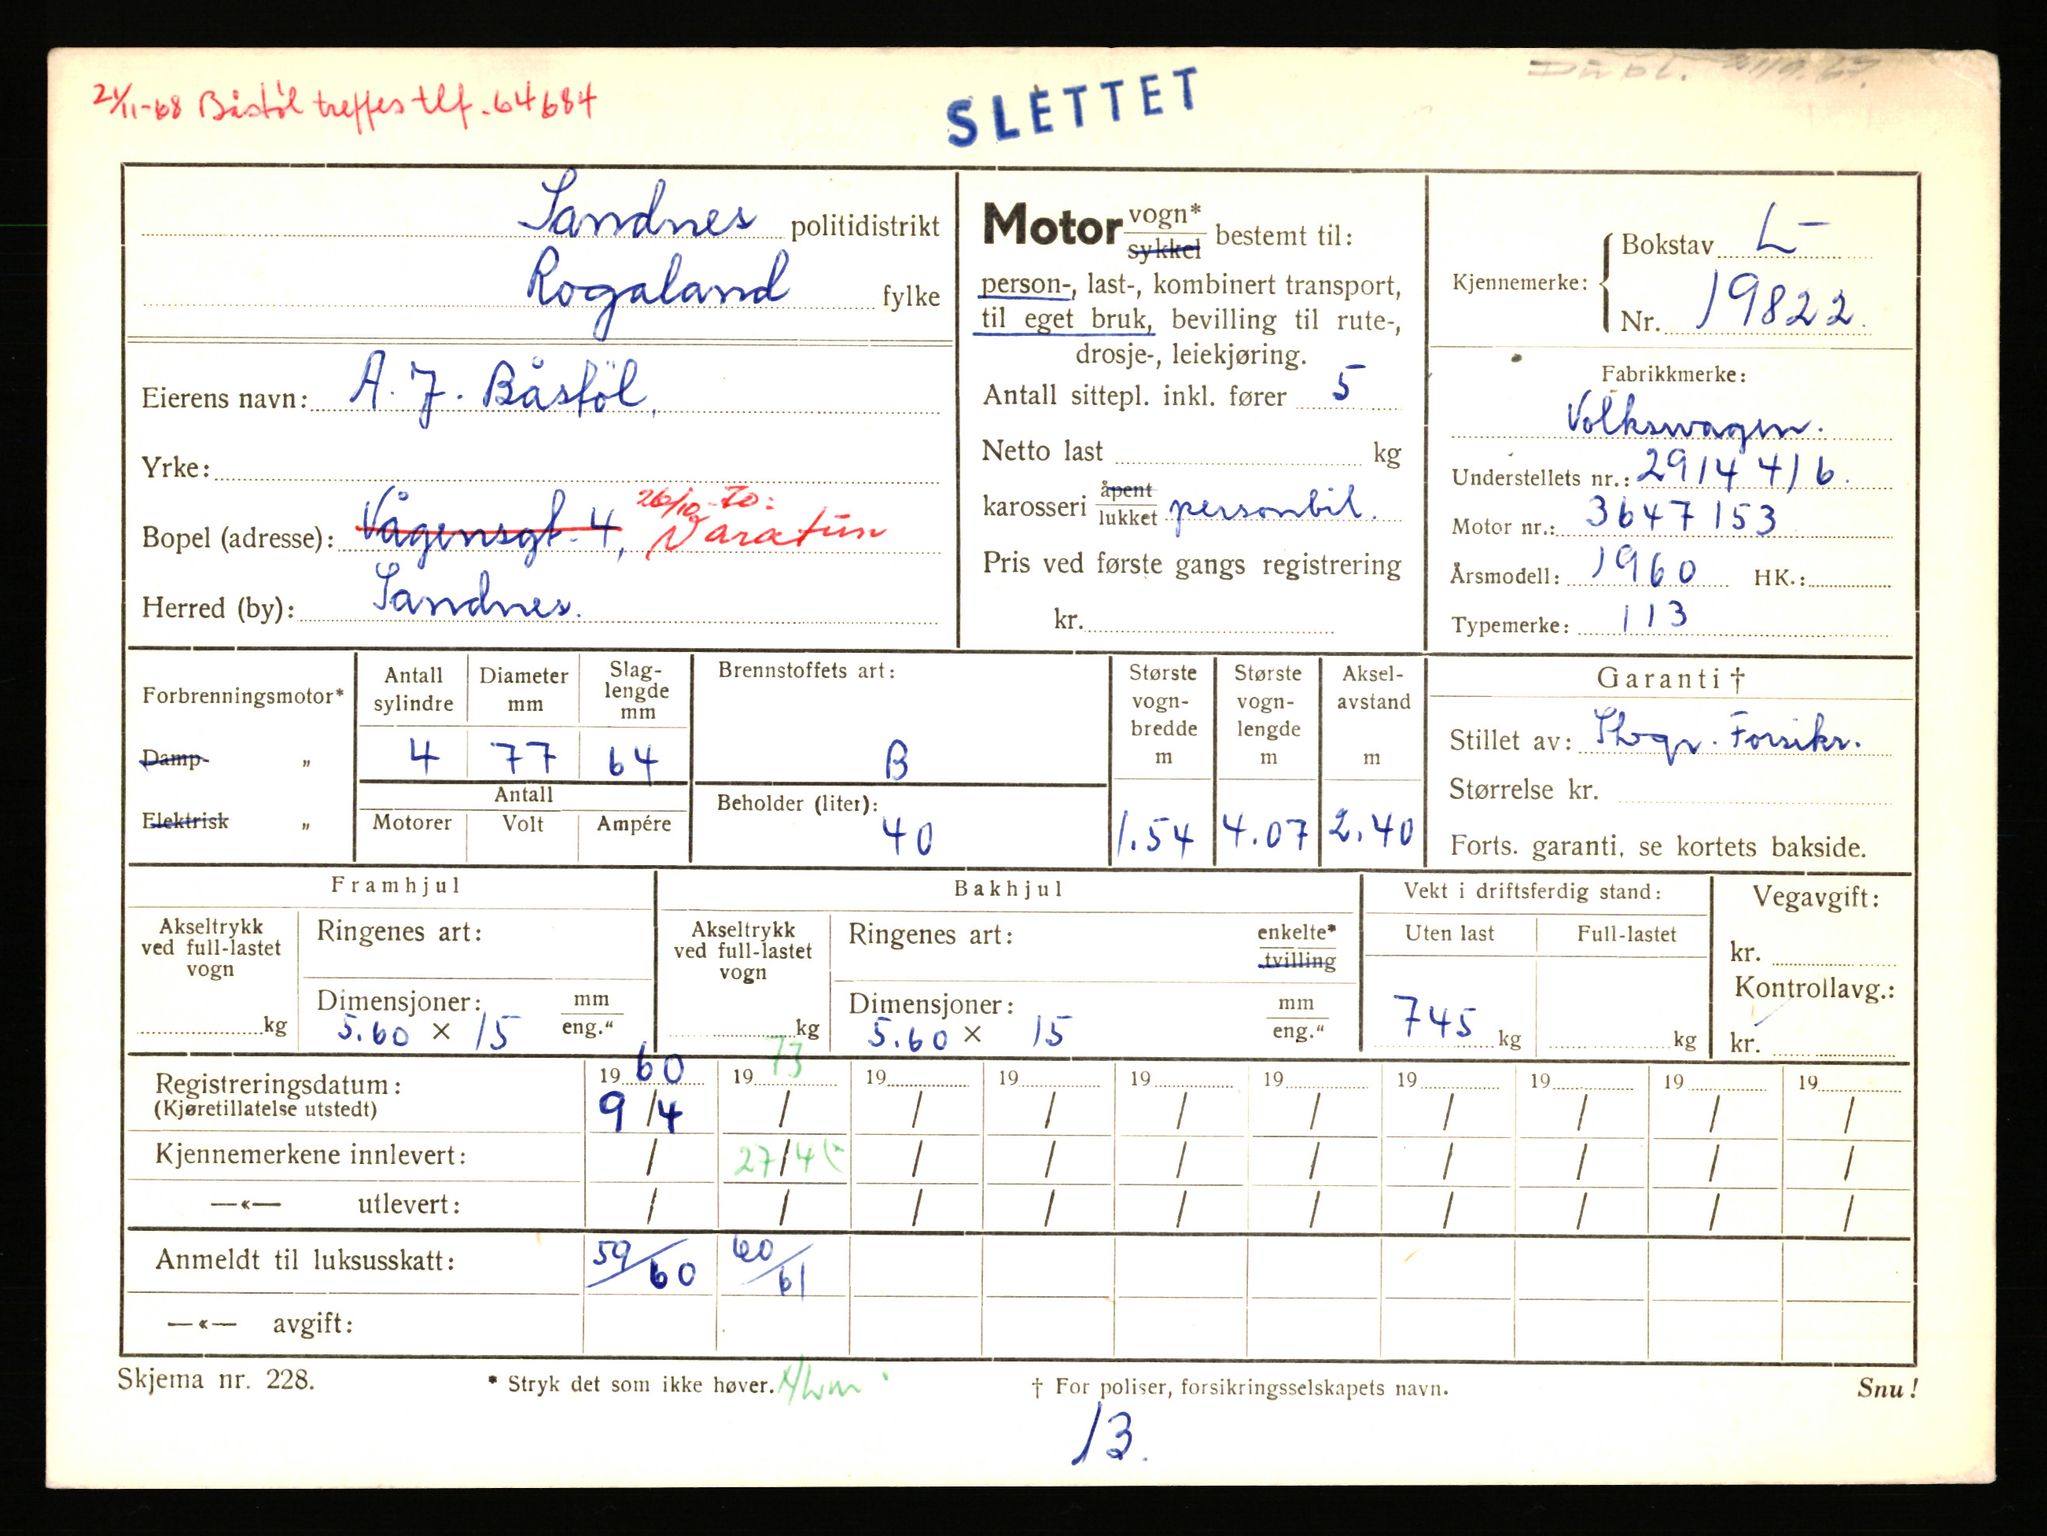 21/11-68 Båstøl treffes tlf. 64684
SLETTET
Dubl.
Sandnes politidistrikt
Rogaland fylke
Eierens navn: A. J. Båstöl.
Yrke:
Bopel (adresse): Vågensgt. 4, 26/10-70: Varatun
Herred (by): Sandnes.
Motor vogn* sykkel bestemt til:
person-, last-, kombinert transport,
til eget bruk, bevilling til rute-,
drosje-, leiekjøring.
Antall sittepl. inkl. fører 5
Netto last kg
karosseri åpent lukket personbil.
Pris ved første gangs registrering
kr.
Kjennemerke: Bokstav L-
Nr. 19822.
Fabrikkmerke:
Volkswagen.
Understellets nr.: 2914416.
Motor nr.: 3647153
Årsmodell: 1960 HK.:
Typemerke: 113
Forbrenningsmotor*
Damp- „
Elektrisk „
Antall sylindre Diameter mm Slag-lengde mm
4 77 64
Antall
Motorer Volt Ampére
Brennstoffets art:
B
Beholder (liter):
40
Største vogn-bredde m Største vogn-lengde m Aksel-avstand m
1.54 4.07 2.40
Garanti †
Stillet av: Forsikr.
Størrelse kr.
Forts. garanti, se kortets bakside.
Framhjul
Akseltrykk ved full-lastet vogn
kg
Ringenes art:
Dimensjoner: mm eng."
5.60 × 15
Bakhjul
Akseltrykk ved full-lastet vogn
kg
Ringenes art: enkelte* tvilling
Dimensjoner: mm eng."
5.60 × 15
Vekt i driftsferdig stand:
Uten last Full-lastet
745 kg kg
Vegavgift:
kr.
Kontrollavg.:
kr.
Registreringsdatum: 1960 1973 19 19 19 19 19 19 19 19
(Kjøretillatelse utstedt) 9/4 / / / / / / / / /
Kjennemerkene innlevert: / 27/4 / / / / / / / /
—«— utlevert: / / / / / / / / / /
Anmeldt til luksusskatt: 59/60 60/61
—«— avgift:
Skjema nr. 228.
* Stryk det som ikke høver.
† For poliser, forsikringsselskapets navn.
Snu!
13.